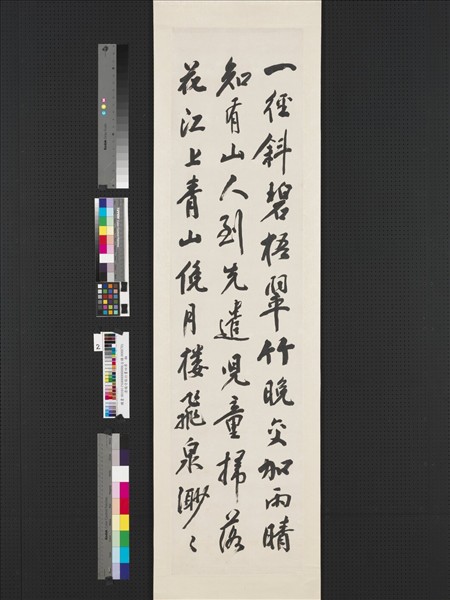 一徑斜碧梧翠竹晚交加雨晴
知有山人到先遣兒童掃落
花江上青山傍月樓飛泉渺〻
2